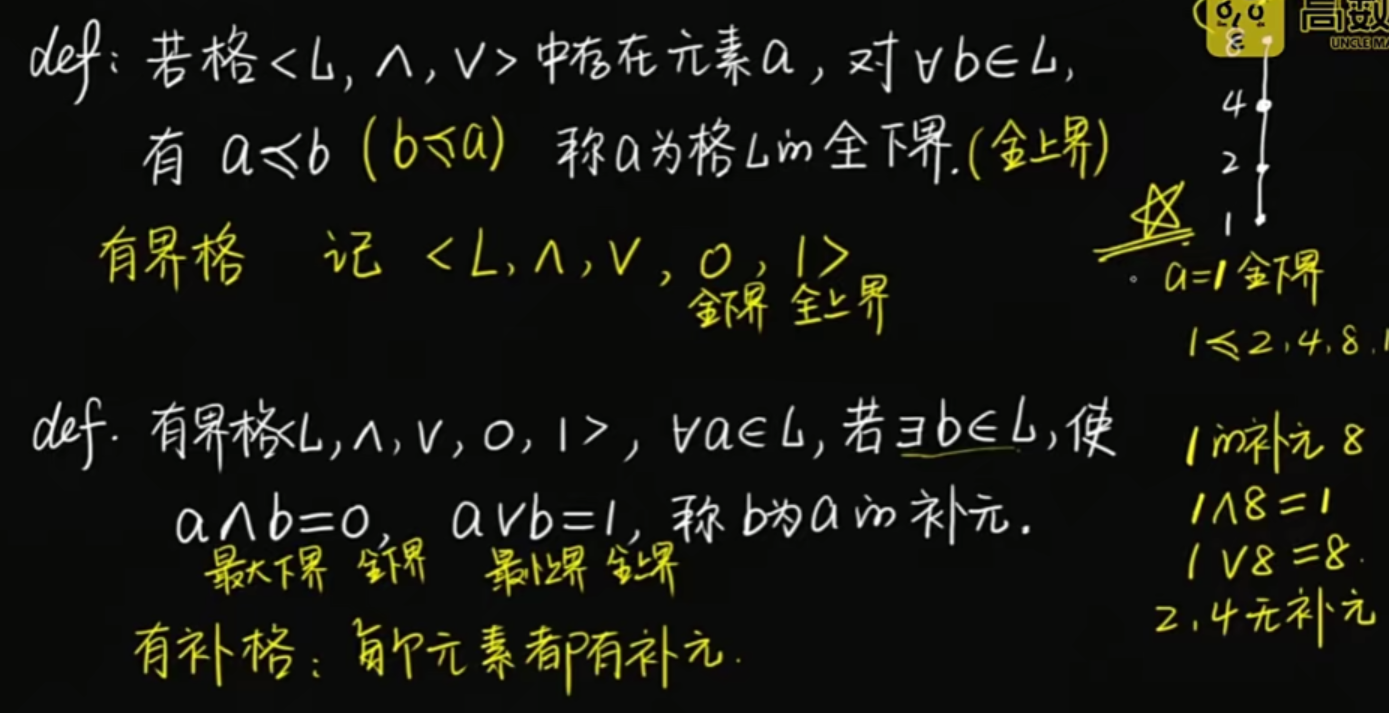 def: 若格<L, ∧, ∨>中存在元素a, 对∀b∈L,
有 a≼b (b≼a) 称a为格L的全下界.(全上界)
有界格 记 <L, ∧, ∨, 0, 1>
全下界 全上界
def. 有界格<L, ∧, ∨, 0, 1>, ∀a∈L, 若∃b∈L, 使
a∧b=0, a∨b=1, 称b为a的补元.
最大下界 全下界 最小上界 全上界
有补格: 每个元素都有补元.
高数
UNCLE MA
8
4
2
1
a=1 全下界
1≼2,4,8,1
1的补元 8
1∧8=1
1∨8=8.
2,4无补元